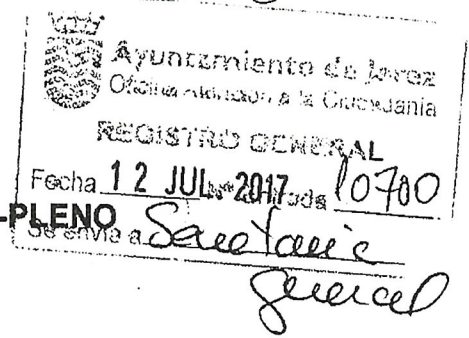 Ayuntamiento de Jerez
Oficina Atención a la Ciudadanía
REGISTRO GENERAL
Fecha 12 JUL. 2017 Entrada 10700
-PLENO
Se envía a Secretaría
General